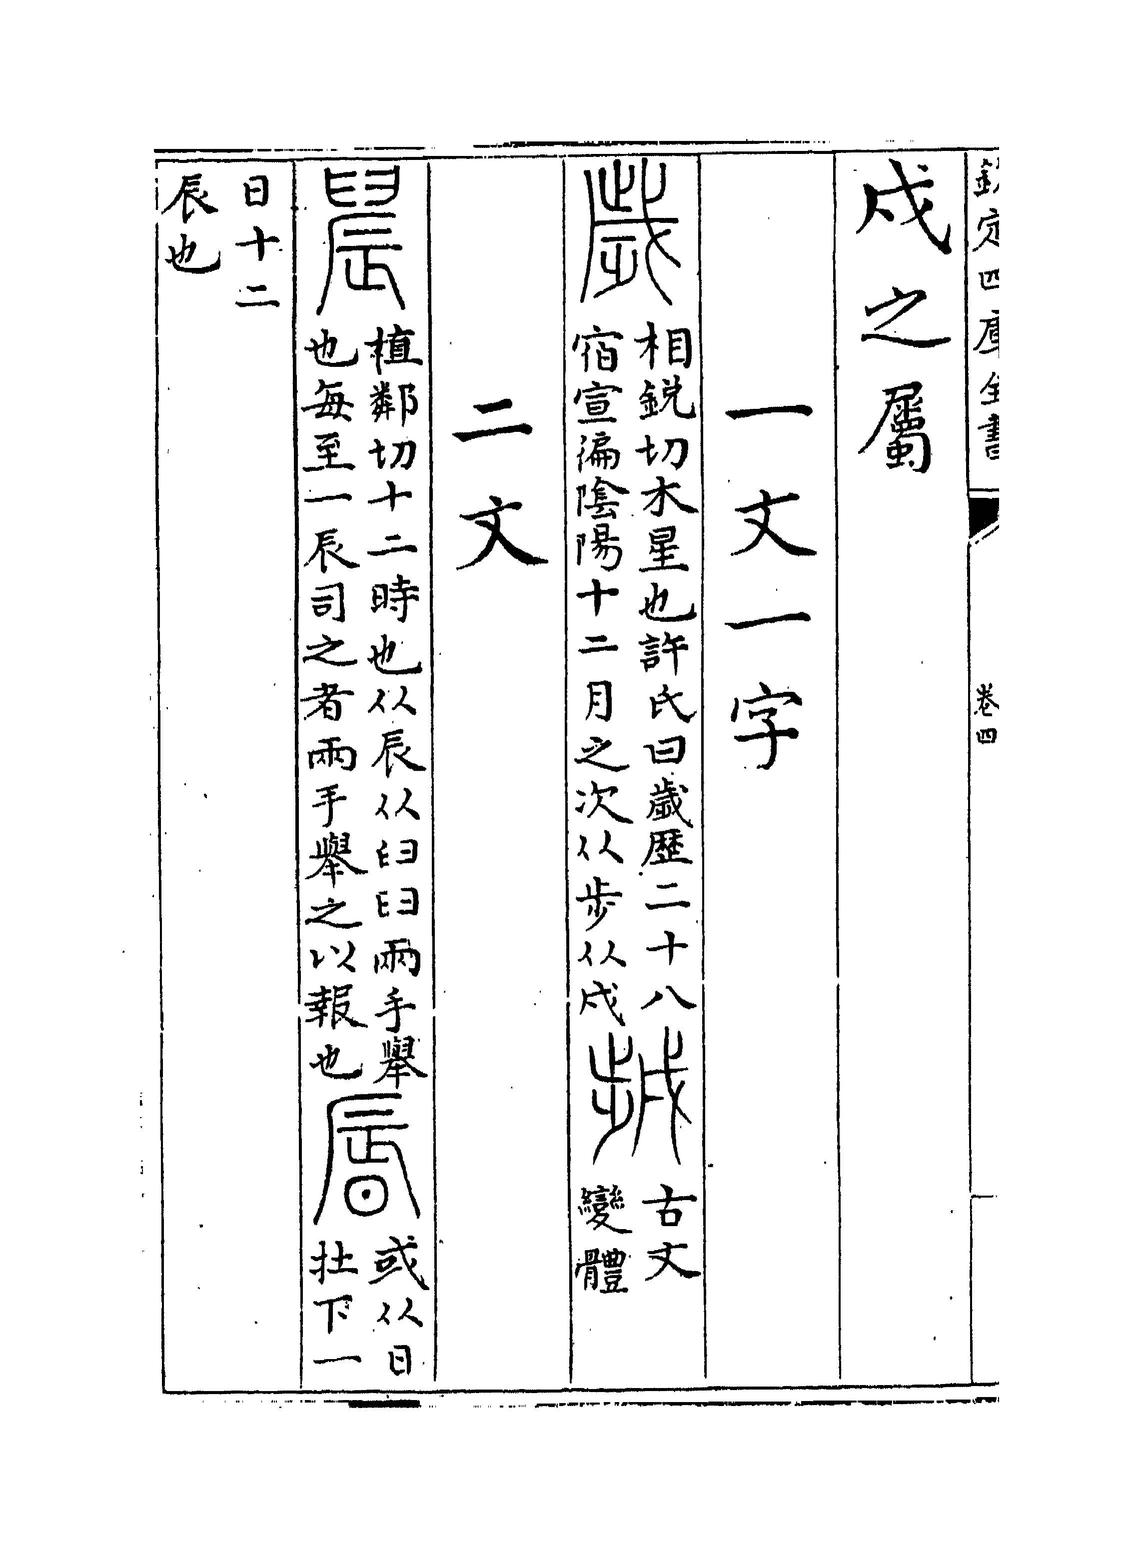 欽定四庫全書
卷四
戌之屬
一文一字
歲
相鋭切木星也許氏曰歲歷二十八
宿宣徧陰陽十二月之次从步从戌
古文
變體
二文
䢅
植鄰切十二時也从辰从𦥑𦥑兩手舉
也每至一辰司之者兩手舉之以報也
或从日
扗下一
日十二
辰也